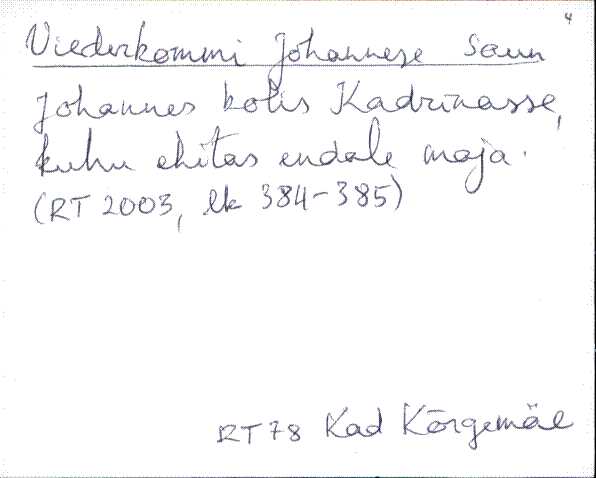 4
Viederkommi Johannese saun
Johannes kolis Kadrinasse,
kuhu ehitas endale maja.
(RT 2003, lk 384-385)
RT 78 Kad Kõrgemäe